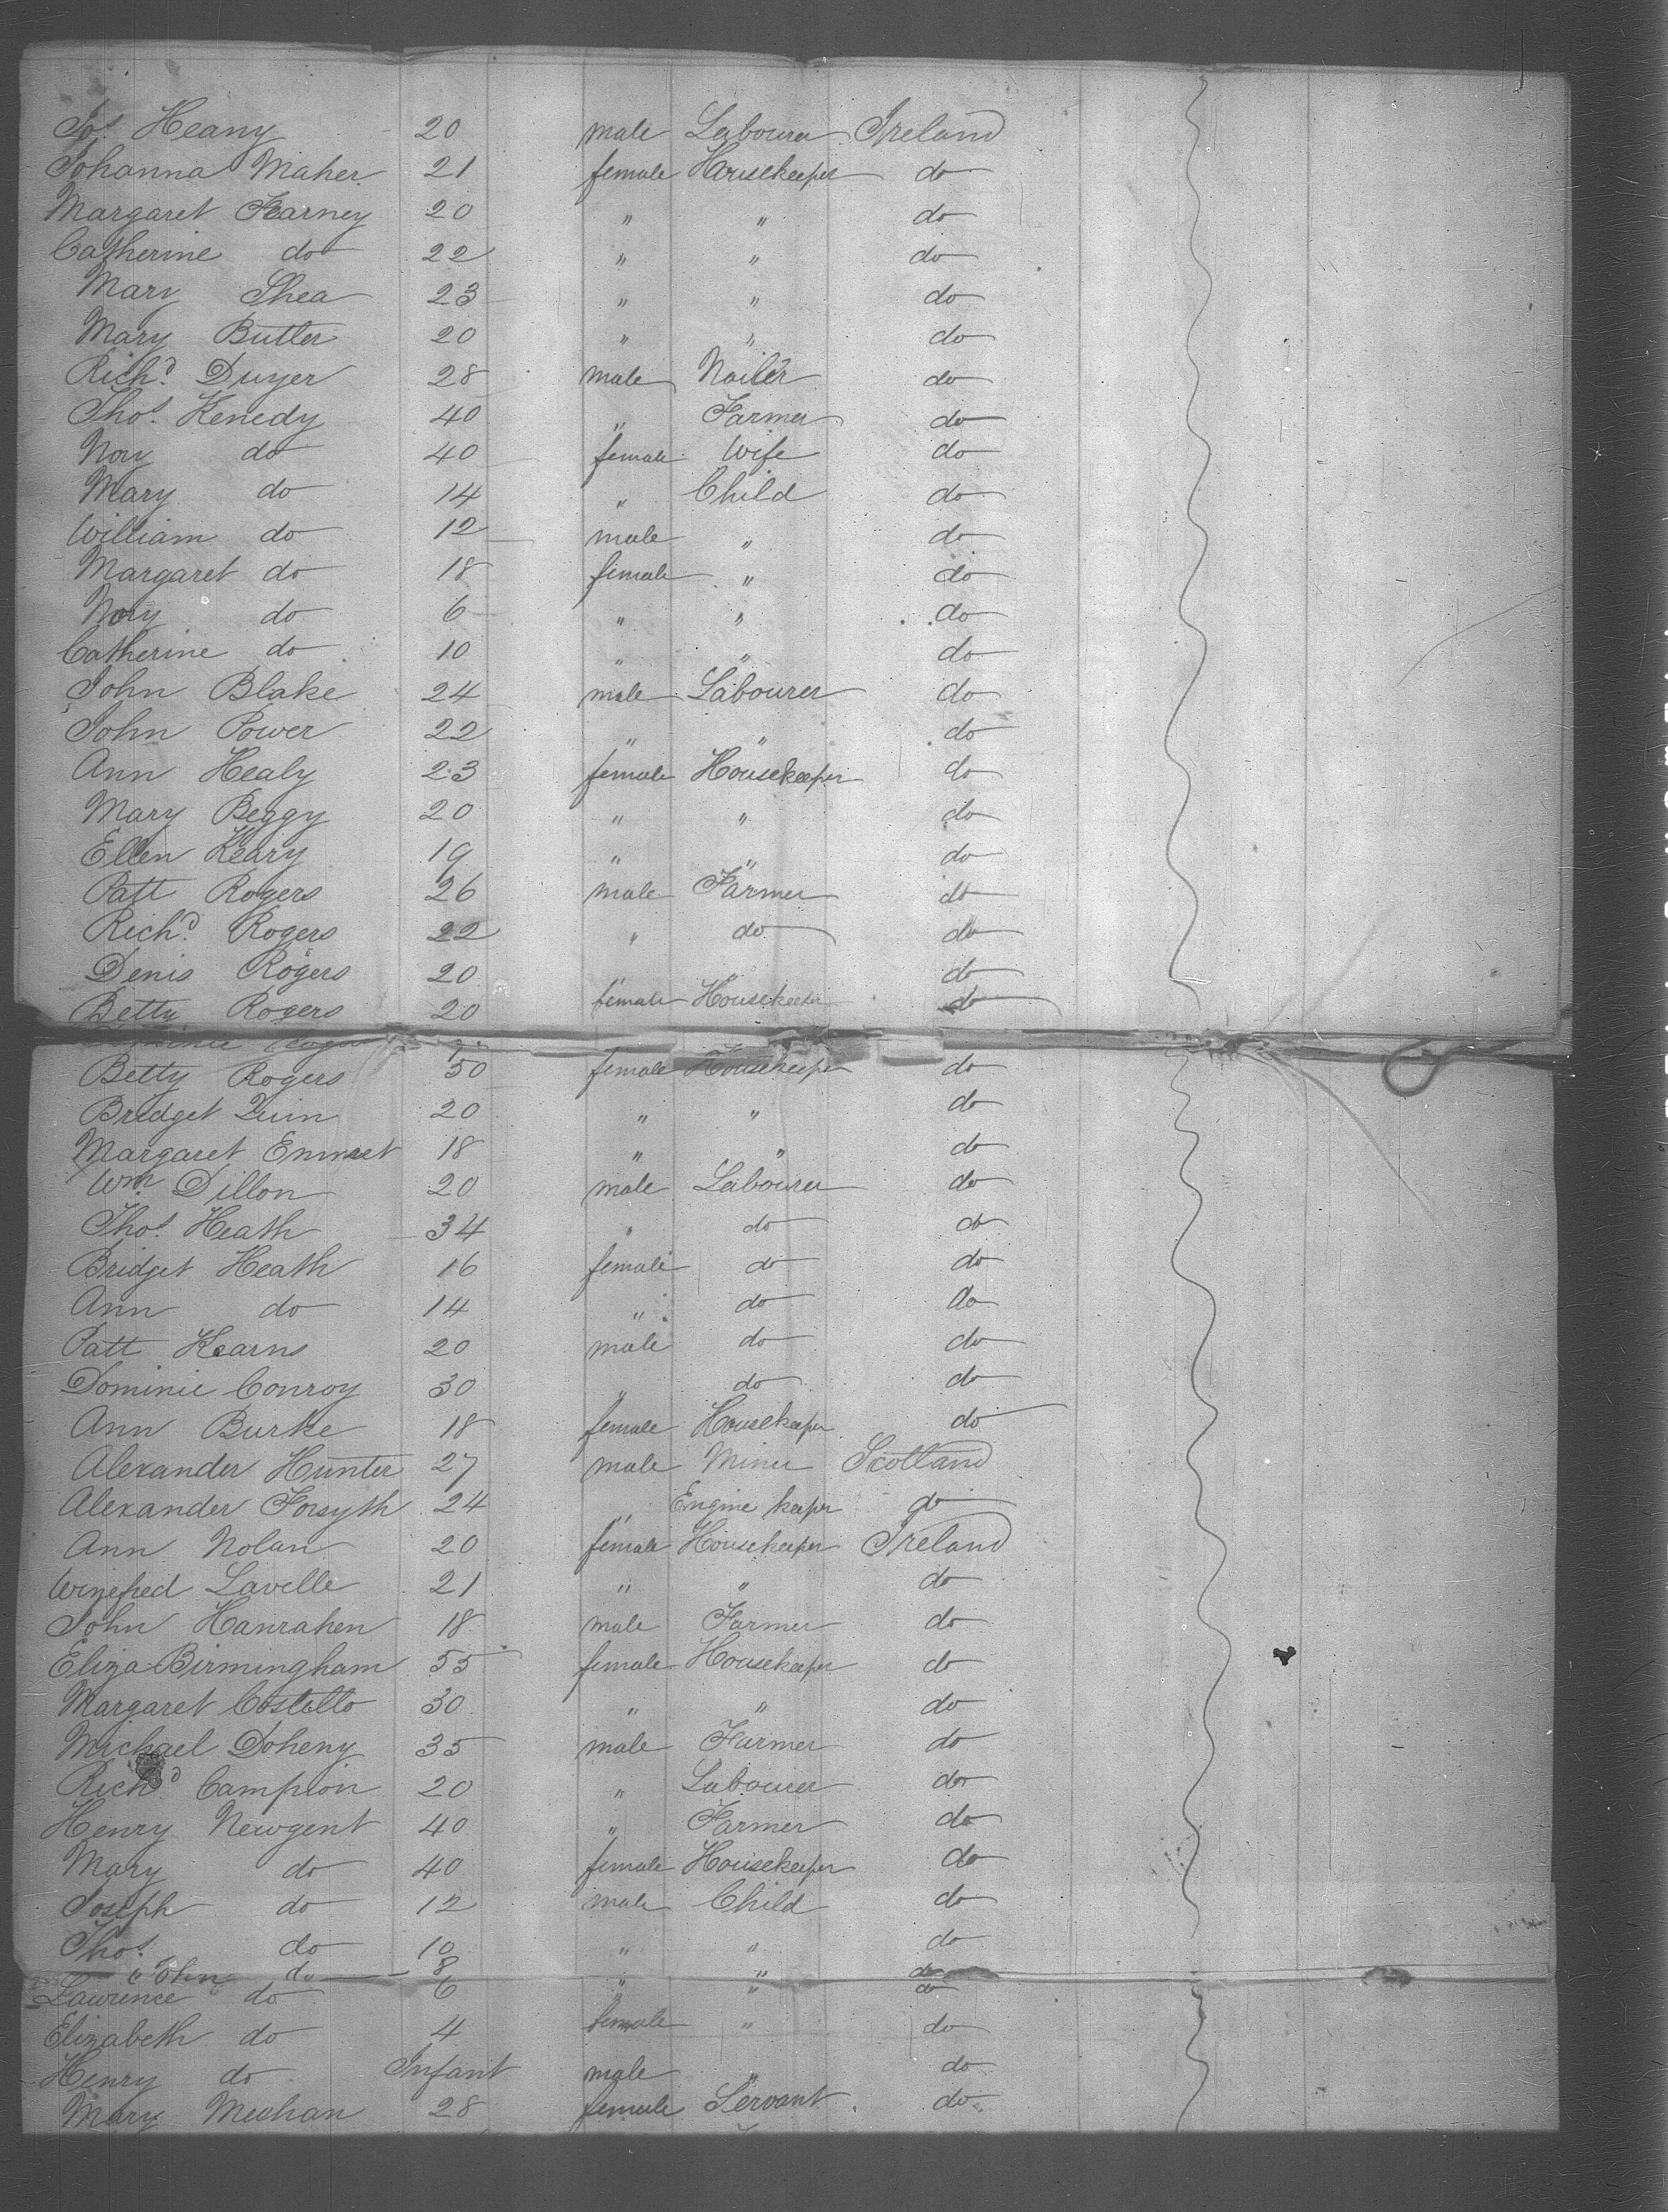 Jos. Heany 20 male Labourer Ireland
Johanna Maher 21 female Housekeeper do
Margaret Fearney 20 " " do
Catherine do 22 " " do
Mary Shea 23 " " do
Mary Butler 20 " " do
Richd. Dwyer 28 male Nailer do
Thos. Kenedy 40 " Farmer do
Nory do 40 female Wife do
Mary do 14 " Child do
William do 12 male " do
Margaret do 18 female " do
Nory do 6 " " do
Catherine do 10 " " do
John Blake 24 male Labourer do
John Power 22 " " do
Ann Healy 23 female Housekeeper do
Mary Beggy 20 " " do
Ellen Keary 19 " " do
Patt Rogers 26 male Farmer do
Richd. Rogers 22 " do do
Denis Rogers 20 " " do
Betty Rogers 20 female Housekeeper do
Betty Rogers 50 female Housekeeper do
Bridget Quin 20 " " do
Margaret Emmet 18 " " do
Wm. Dillon 20 male Labourer do
Thos. Heath 34 " do do
Bridget Heath 16 female do do
Ann do 14 " do do
Patt Kearns 20 male do do
Dominic Conroy 30 " do do
Ann Burke 18 female Housekeeper do
Alexander Hunter 27 male Miner Scotland
Alexander Forsyth 24 " Engine keeper do
Ann Nolan 20 female Housekeeper Ireland
Winefred Lavelle 21 " " do
John Hanrahen 18 male Farmer do
Eliza Birmingham 55 female Housekeeper do
Margaret Costello 30 " " do
Michael Doheny 35 male Farmer do
Richd. Campion 20 " Labourer do
Henry Newgent 40 " Farmer do
Mary do 40 female Housekeeper do
Joseph do 12 male Child do
Thos. do 10 " " do
John do 8 " do
Lawrence do 6 " " do
Elizabeth do 4 female " do
Henry do Infant male " do
Mary Meehan 28 female Servant do